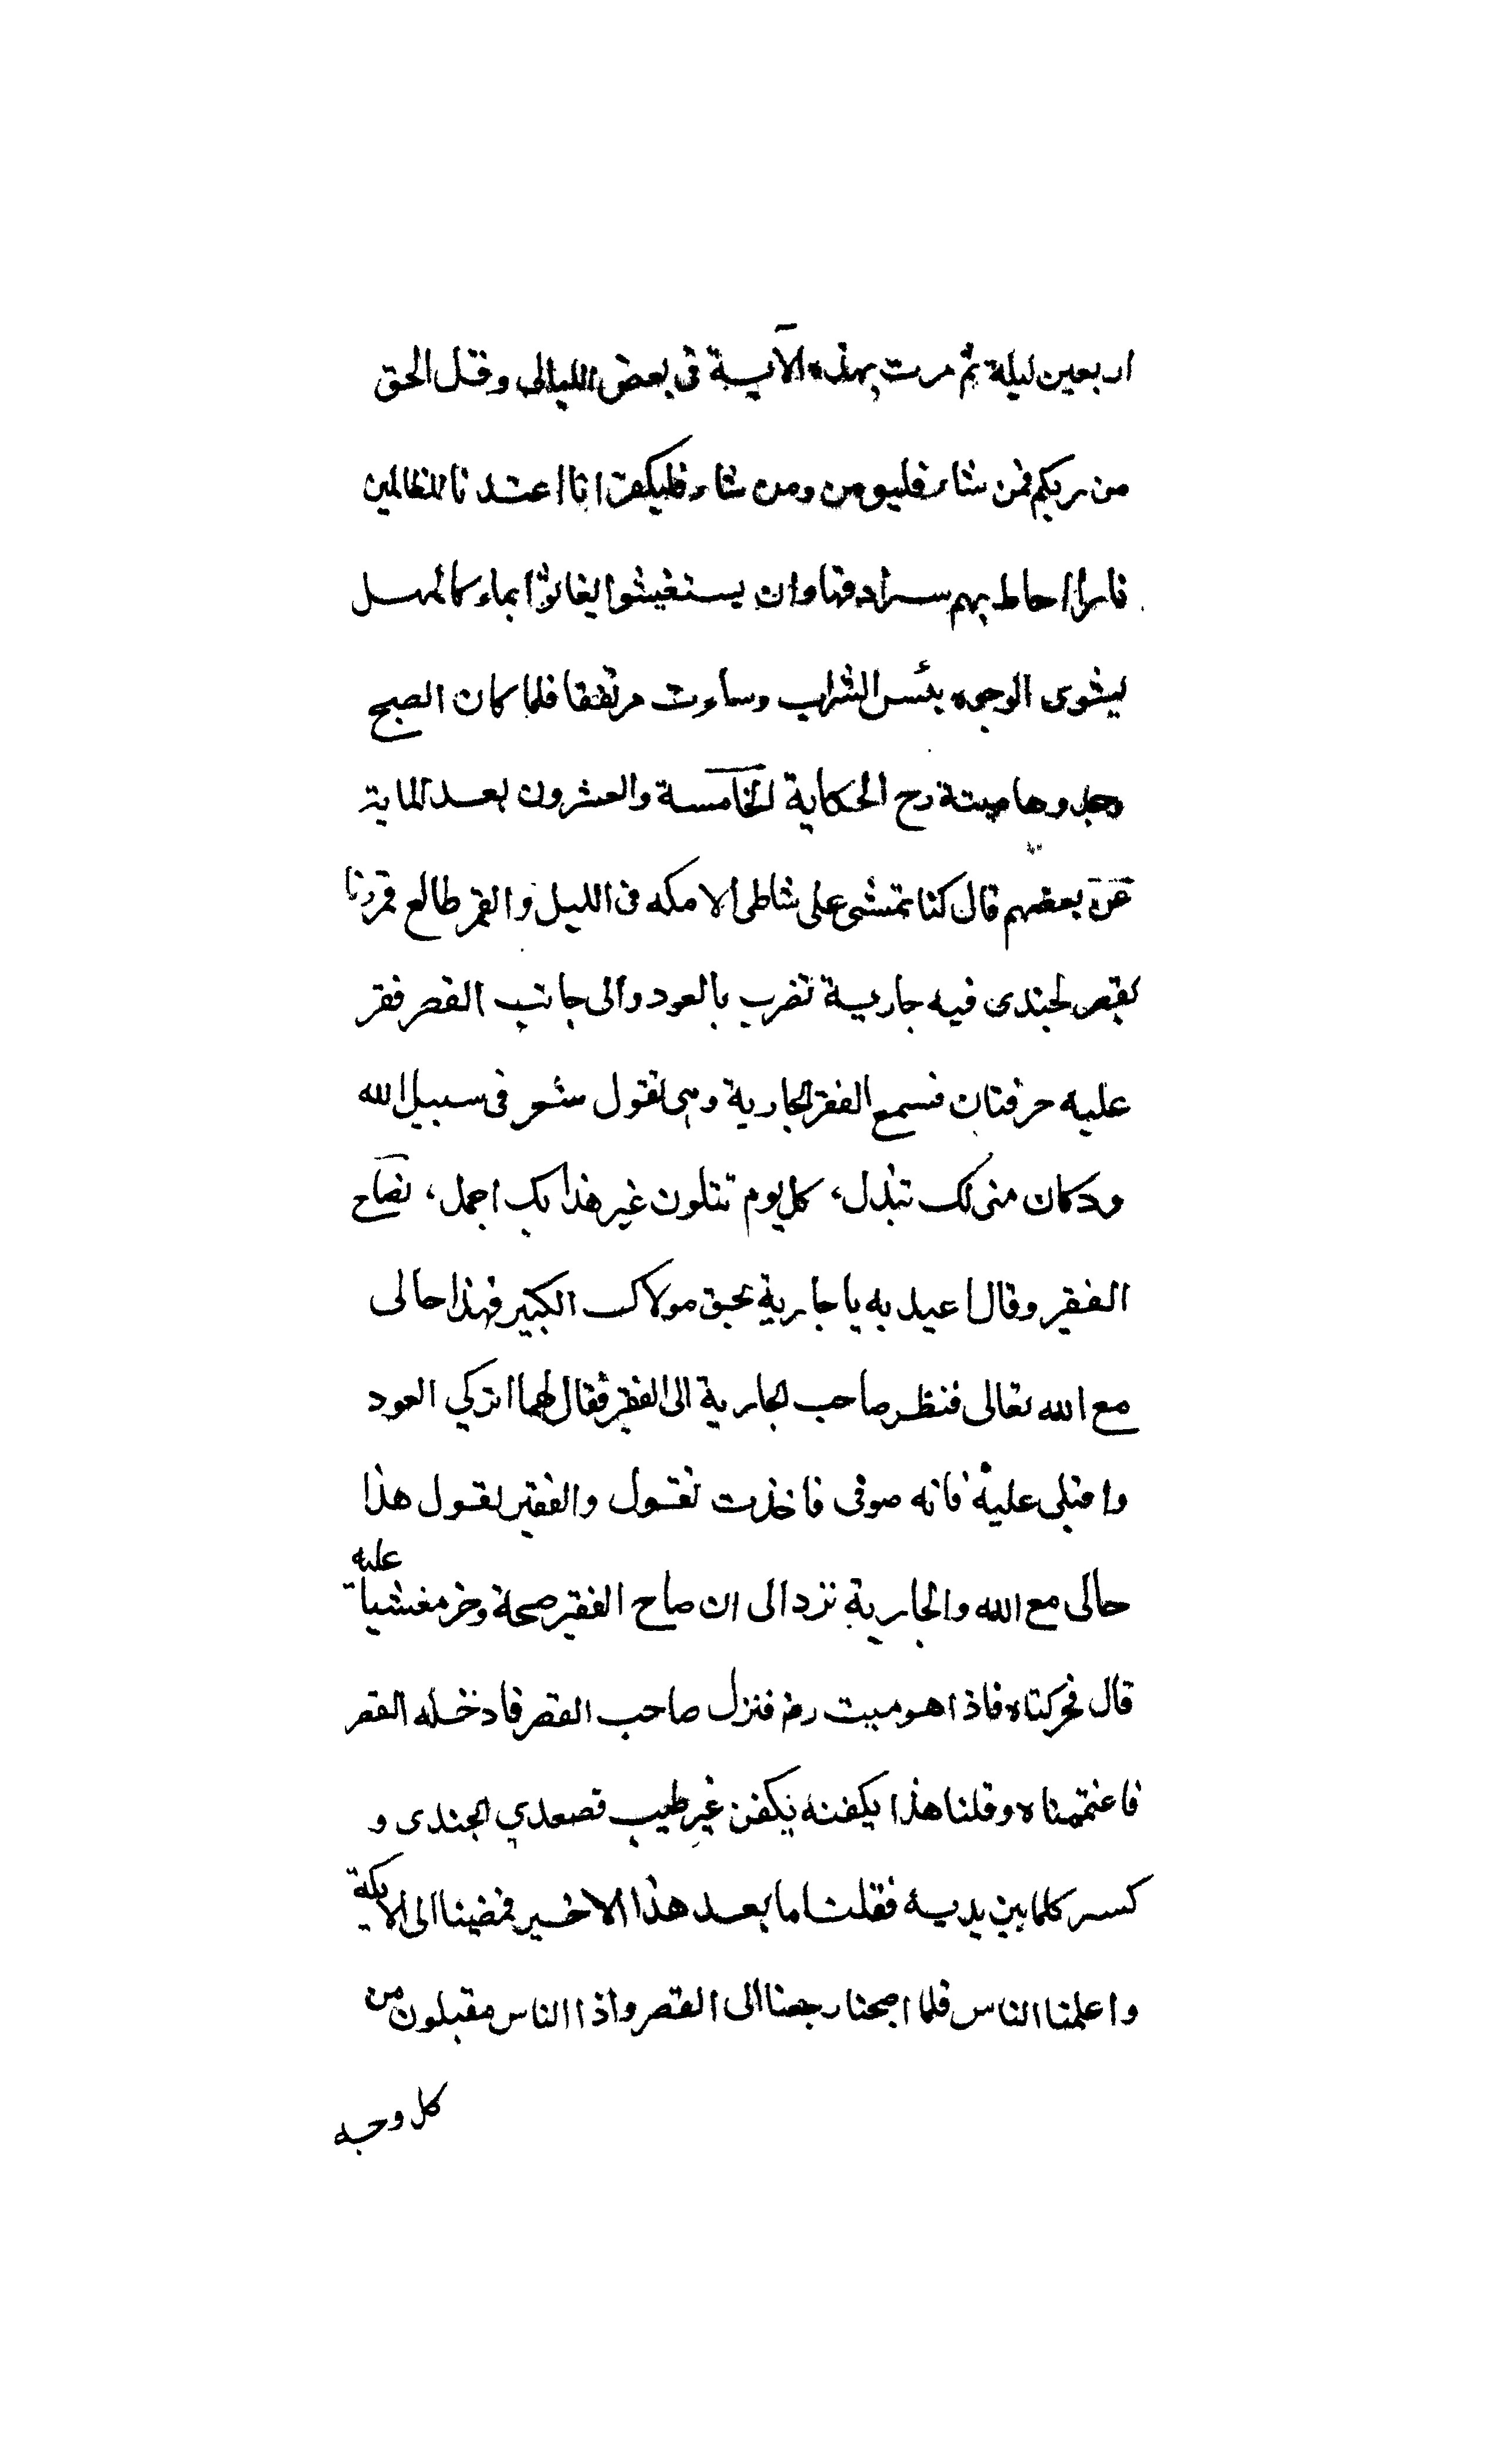 اربعين ليلة ثم مرت بهذه الآية فى بعض الليالى وقل الحق
من ربكم فمن شاء فليومن ومن شاء فليكفر انا اعتدنا للظالمين
نارا احاط بهم سرادقها وان يستغيثوا يغاثوا بماء كالمهل
يشوى الوجوه بئس الشراب وساءت مرتفقا فلما كان الصبح
وجدوها ميتة رح الحكاية الخامسة والعشرون بعد الماية
عن بعضهم قال كنا نتمشى على شاطى الامكه فى الليل والقمر طالع فمررنا
بقصر لجندى فيه جارية تضرب بالعود والى جانب القصر فقر
عليه خرقتان فسمع الفقر الجارية وهى تقول شعر فى سبيل الله
ودكان منى لك تبذل، كل يوم تتلون غير هذا بك اجمل، فصاح
الفقير وقال اعيد به يا جارية بحق مولاك الكبير فهذا حالى
مع الله تعالى فنظر صاحب الجارية الى الفقير فقال لهما اتركي العود
واقبلى عليه فانه صوفى فاخذت تقول والفقير يقول هذا
حالى مع الله والجارية تردد الى ان صاح الفقير صيحة وخر مغشيا عليه
قال فحركناه فاذا هو ميت رض فنزل صاحب القصر فادخله القصر
فاغتممناه وقلنا هذا يكفنه بكفن غير طيب فصعدي الجندى و
كسر كلما بين يديه فقلنا ما بعد هذا الا خير فمضينا الى الايكة
واعلمنا الناس فلما اصبحنا رجعنا الى القصر واذا الناس مقبلون من
كل وجه